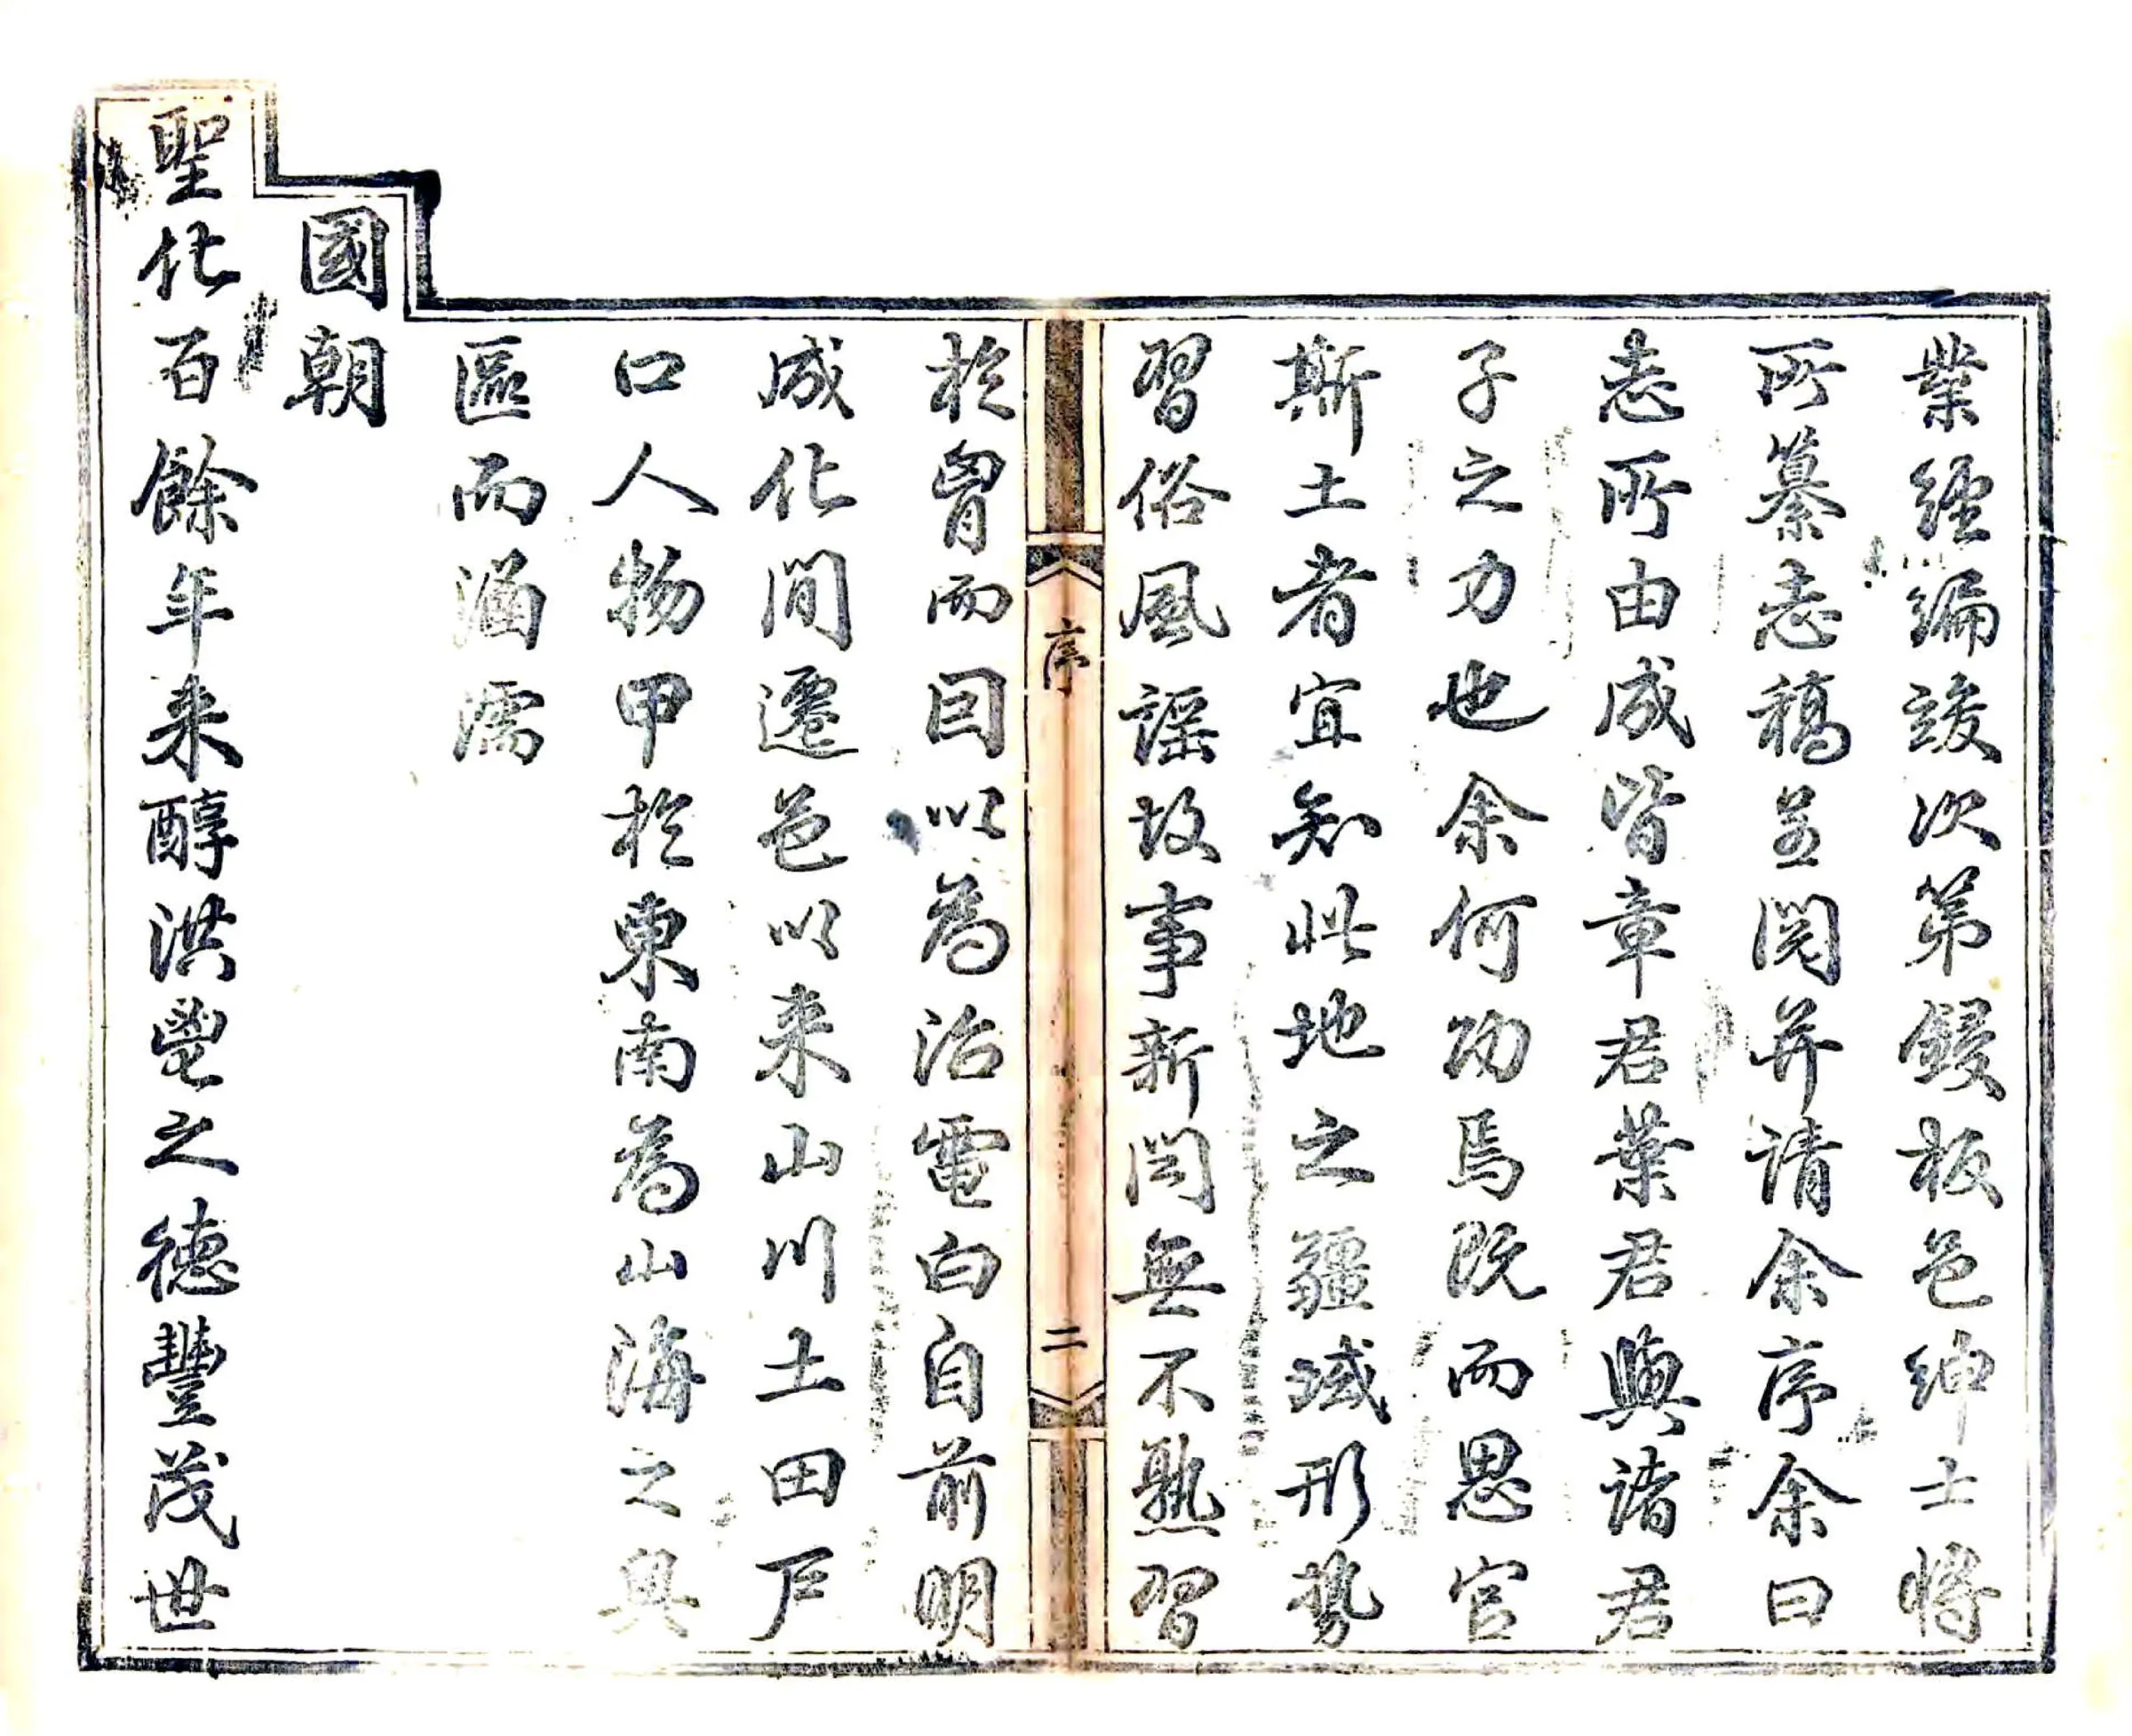 業經編竣次第鋟板邑紳士將
所纂志稿並図并请余序余曰
志所由成皆章君葉君與諸君
子之力也余何功焉既而思官
斯土者宜知此地之疆域形勢
習俗風謡故事新闻無不熟習
序
二
於胷而目以為治電白自前明
成化间遷邑以来山川土田户
口人物甲於東南為山海之奥
區而涵濡
國朝
聖化百餘年来醇洪鬯之德豐茂世